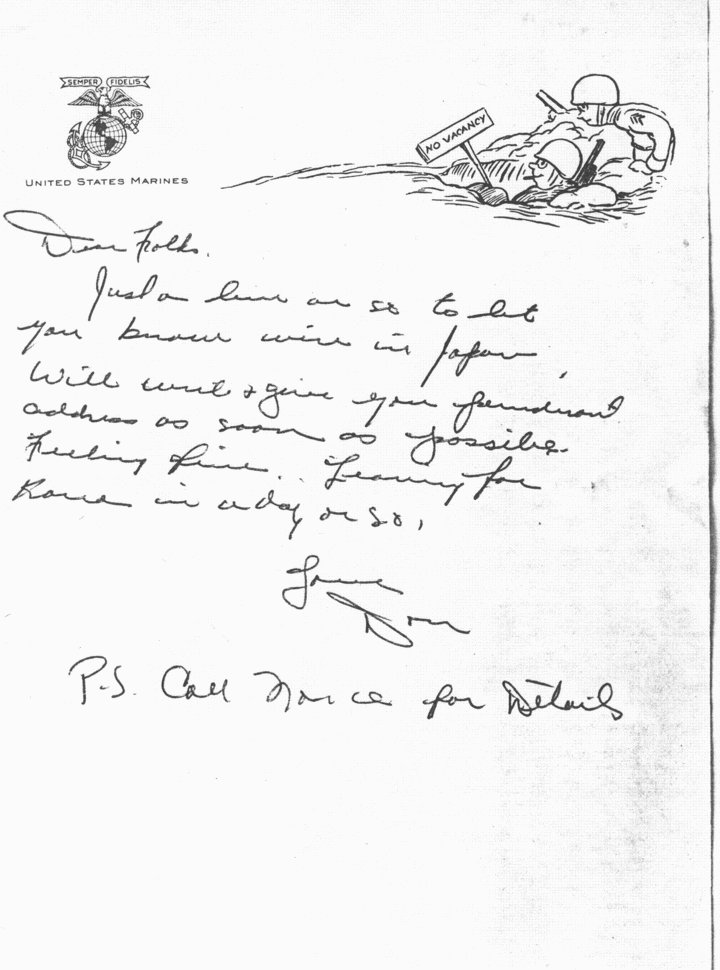 SEMPER FIDELIS
NO VACANCY
UNITED STATES MARINES
Dear Folks.
Just a line or so to let
you know we're in Japan,
Will write & give you permanent
address as soon as possible.
Feeling fine.. Leaving for
Korea in a day or so,
Love
Don
P.S. Call for Details